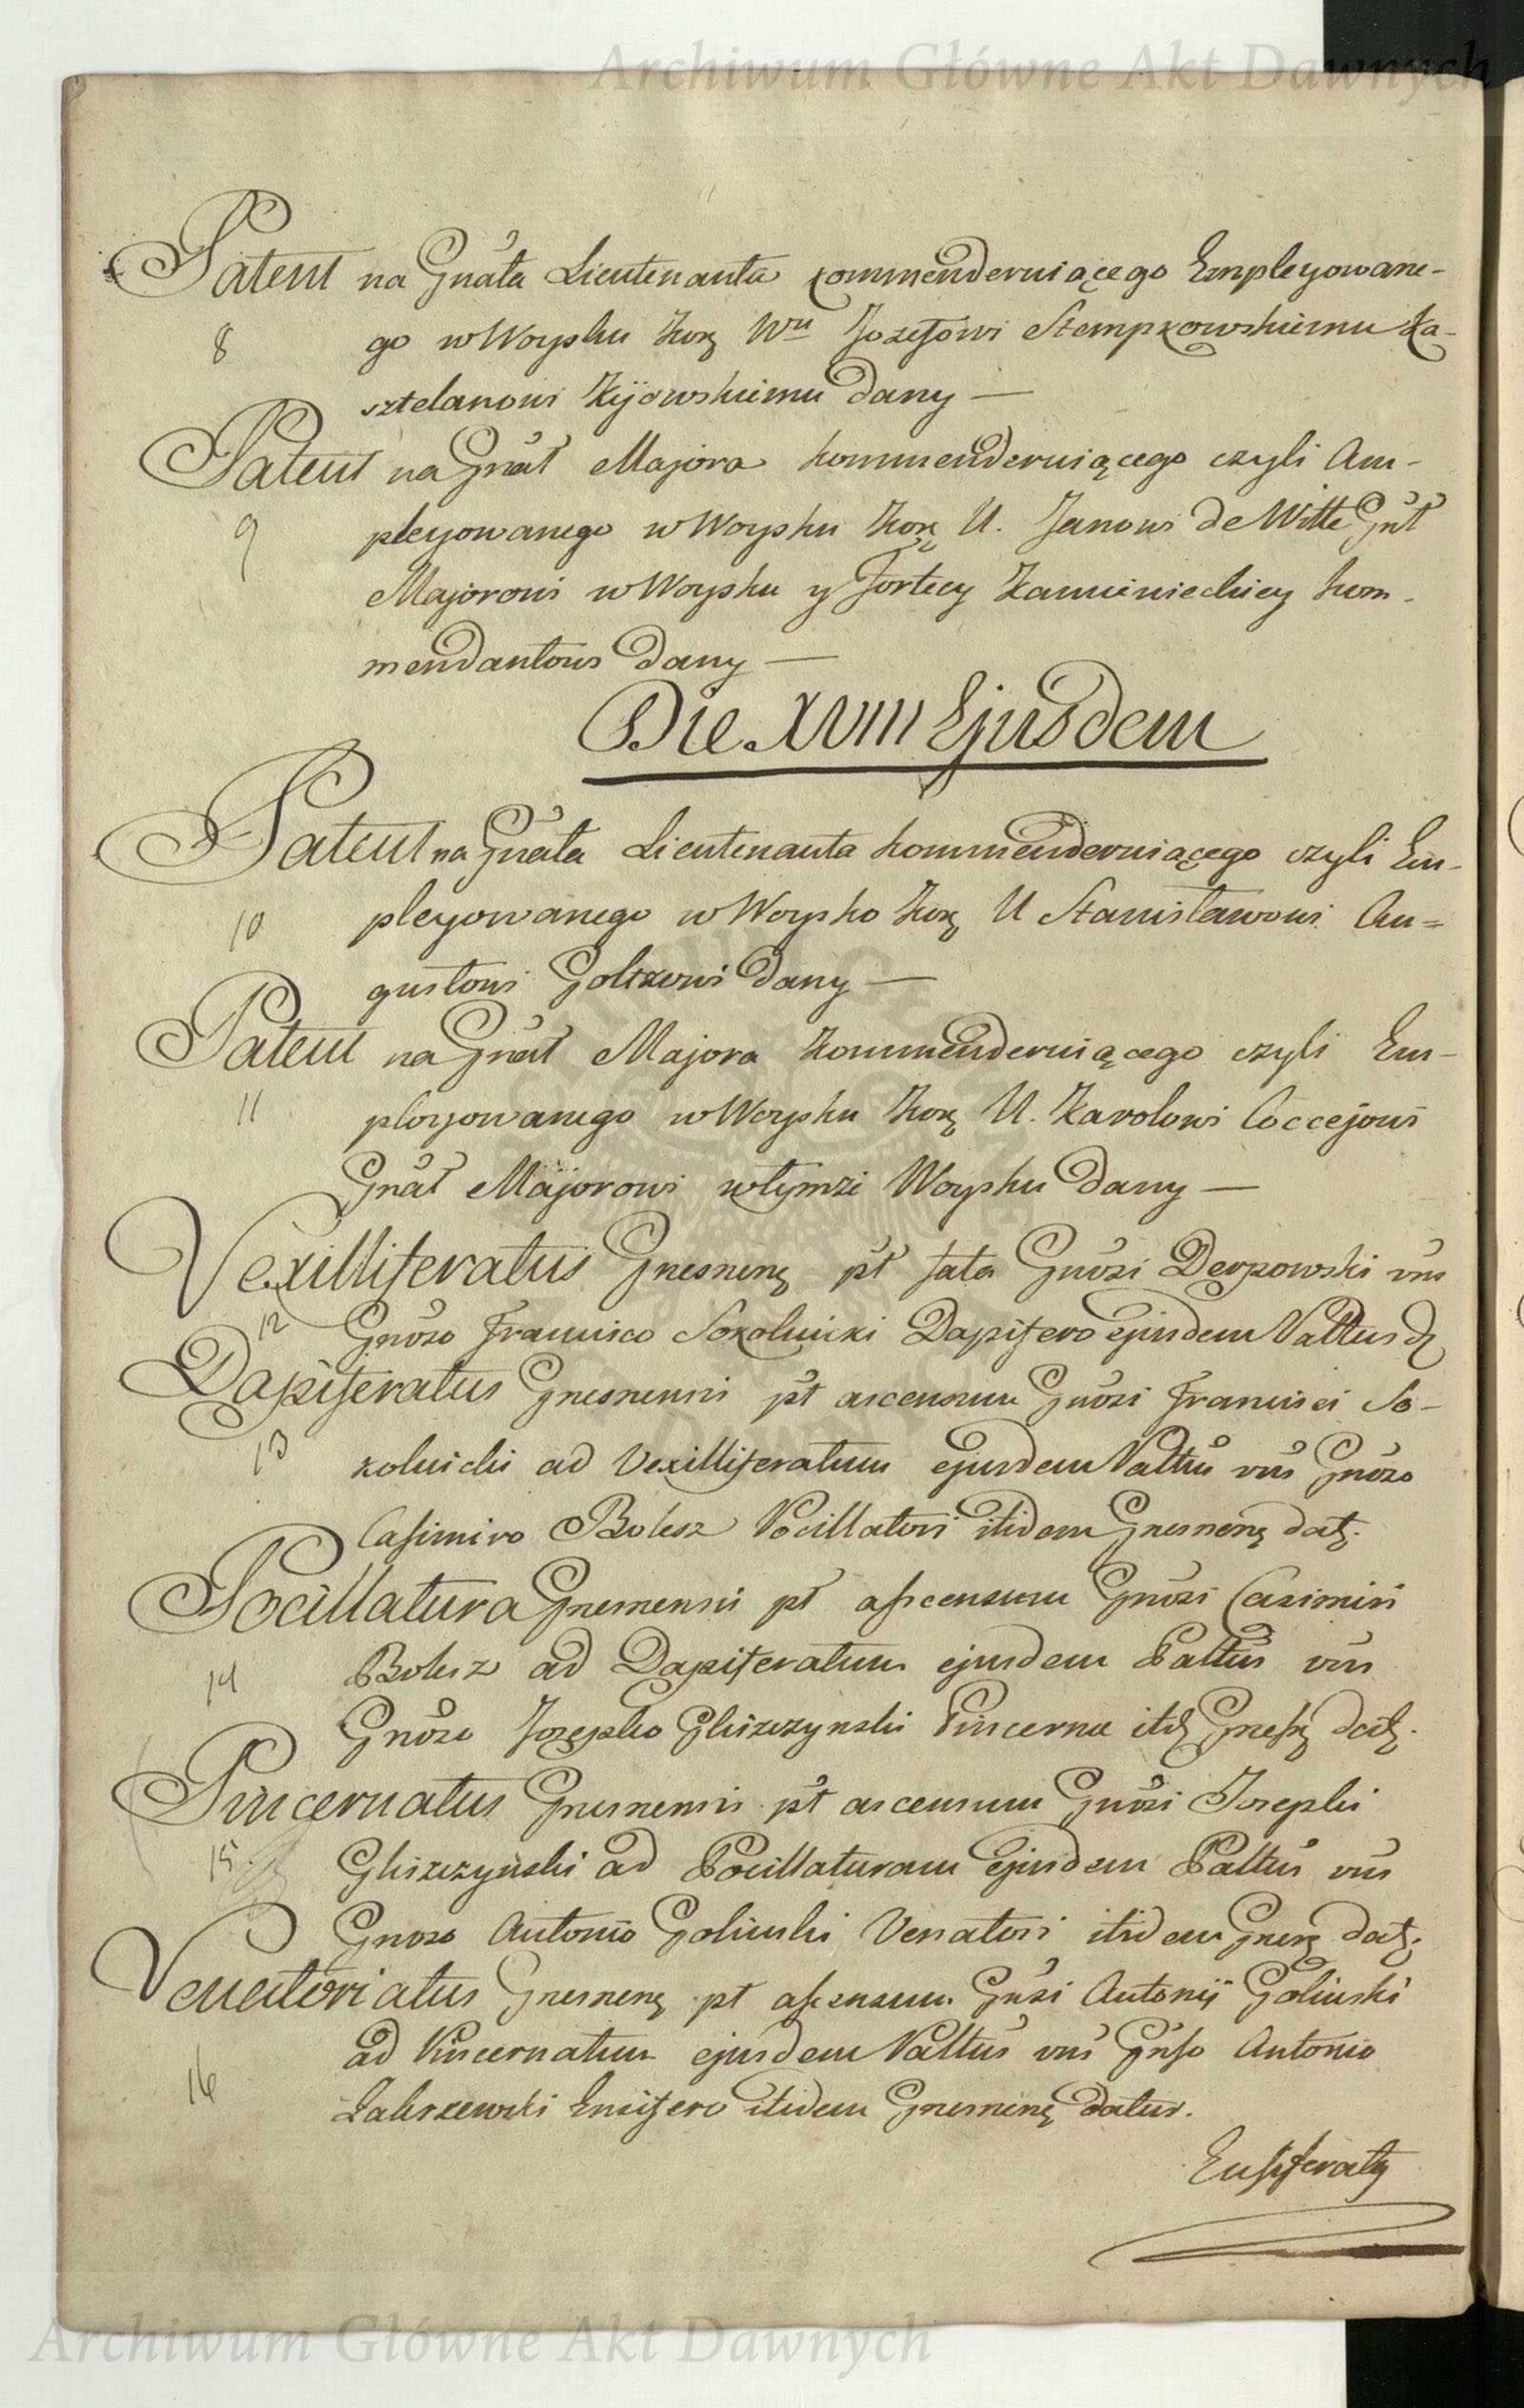 Archiwum Główne Akt Dawnych
Patent na Gnała Lieutenanta kommenderuiącego Empleyowane-
8 go w Woysku Kor. Wu Jozefowi Stempkowskiemu Ka-
sztelanowi Kijowskiemu dany —
Patent na Gnał Majora kommenderuiącego czyli Am-
9 pleyowanego w Woysku Kor. U. Janowi de Witte Gnł
Majorowi w Woysku y Fortecy Kamienieckiey kom-
mendantowi dany —
Die XVIII Ejusdem
Patent na Gnała Lieutenanta kommenderuiącego czyli Em-
10 pleyowanego w Woysko Kor. U Stanisławowi Au=
gustowi Goltzowi dany —
Patent na Gnał Majora Kommenderuiącego czyli Em-
11 ployowanego w Woysku Kor. U. Karolowi Coccejowi
Gnał Majorowi w tymże Woysku dany —
Vexilliferatus Gnesnens. pt fata Gnosi Derpowski vns
12 Gnoso Francisco Sokolnicki Dapifero ejusdem Pattus d.
Dapiferatus Gnesnensis pt ascensum Gnosi Francisci So-
13 kolnicki ad Vexilliferatum ejusdem Pattus vns Gnoso
Casimiro Bolesz Pocillatori itidem Gnesnens. dat.
Pocillatura Gnesnensis pt ascensum Gnosi Casimiri
14 Bolesz ad Dapiferatum ejusdem Pattus vns
Gnoso Josepho Gliszczynski Pincernæ itd. Gnesn. dat.
Pincernatus Gnesnensis pt ascensum Gnosi Josephi
15 Gliszczynski ad Pocillaturam Ejusdem Pattus vns
Gnoso Antonio Golinski Venatori itidem Gnesn. dat.
Venatoriatus Gnesnens. pt ascensum Gnsi Antonij Golinski
ad Pincernatum ejusdem Pattus vns Gnso Antonio
16 Zakrzewski Ensifero itidem Gnesnens. datus.
Ensiferatus
Archiwum Główne Akt Dawnych